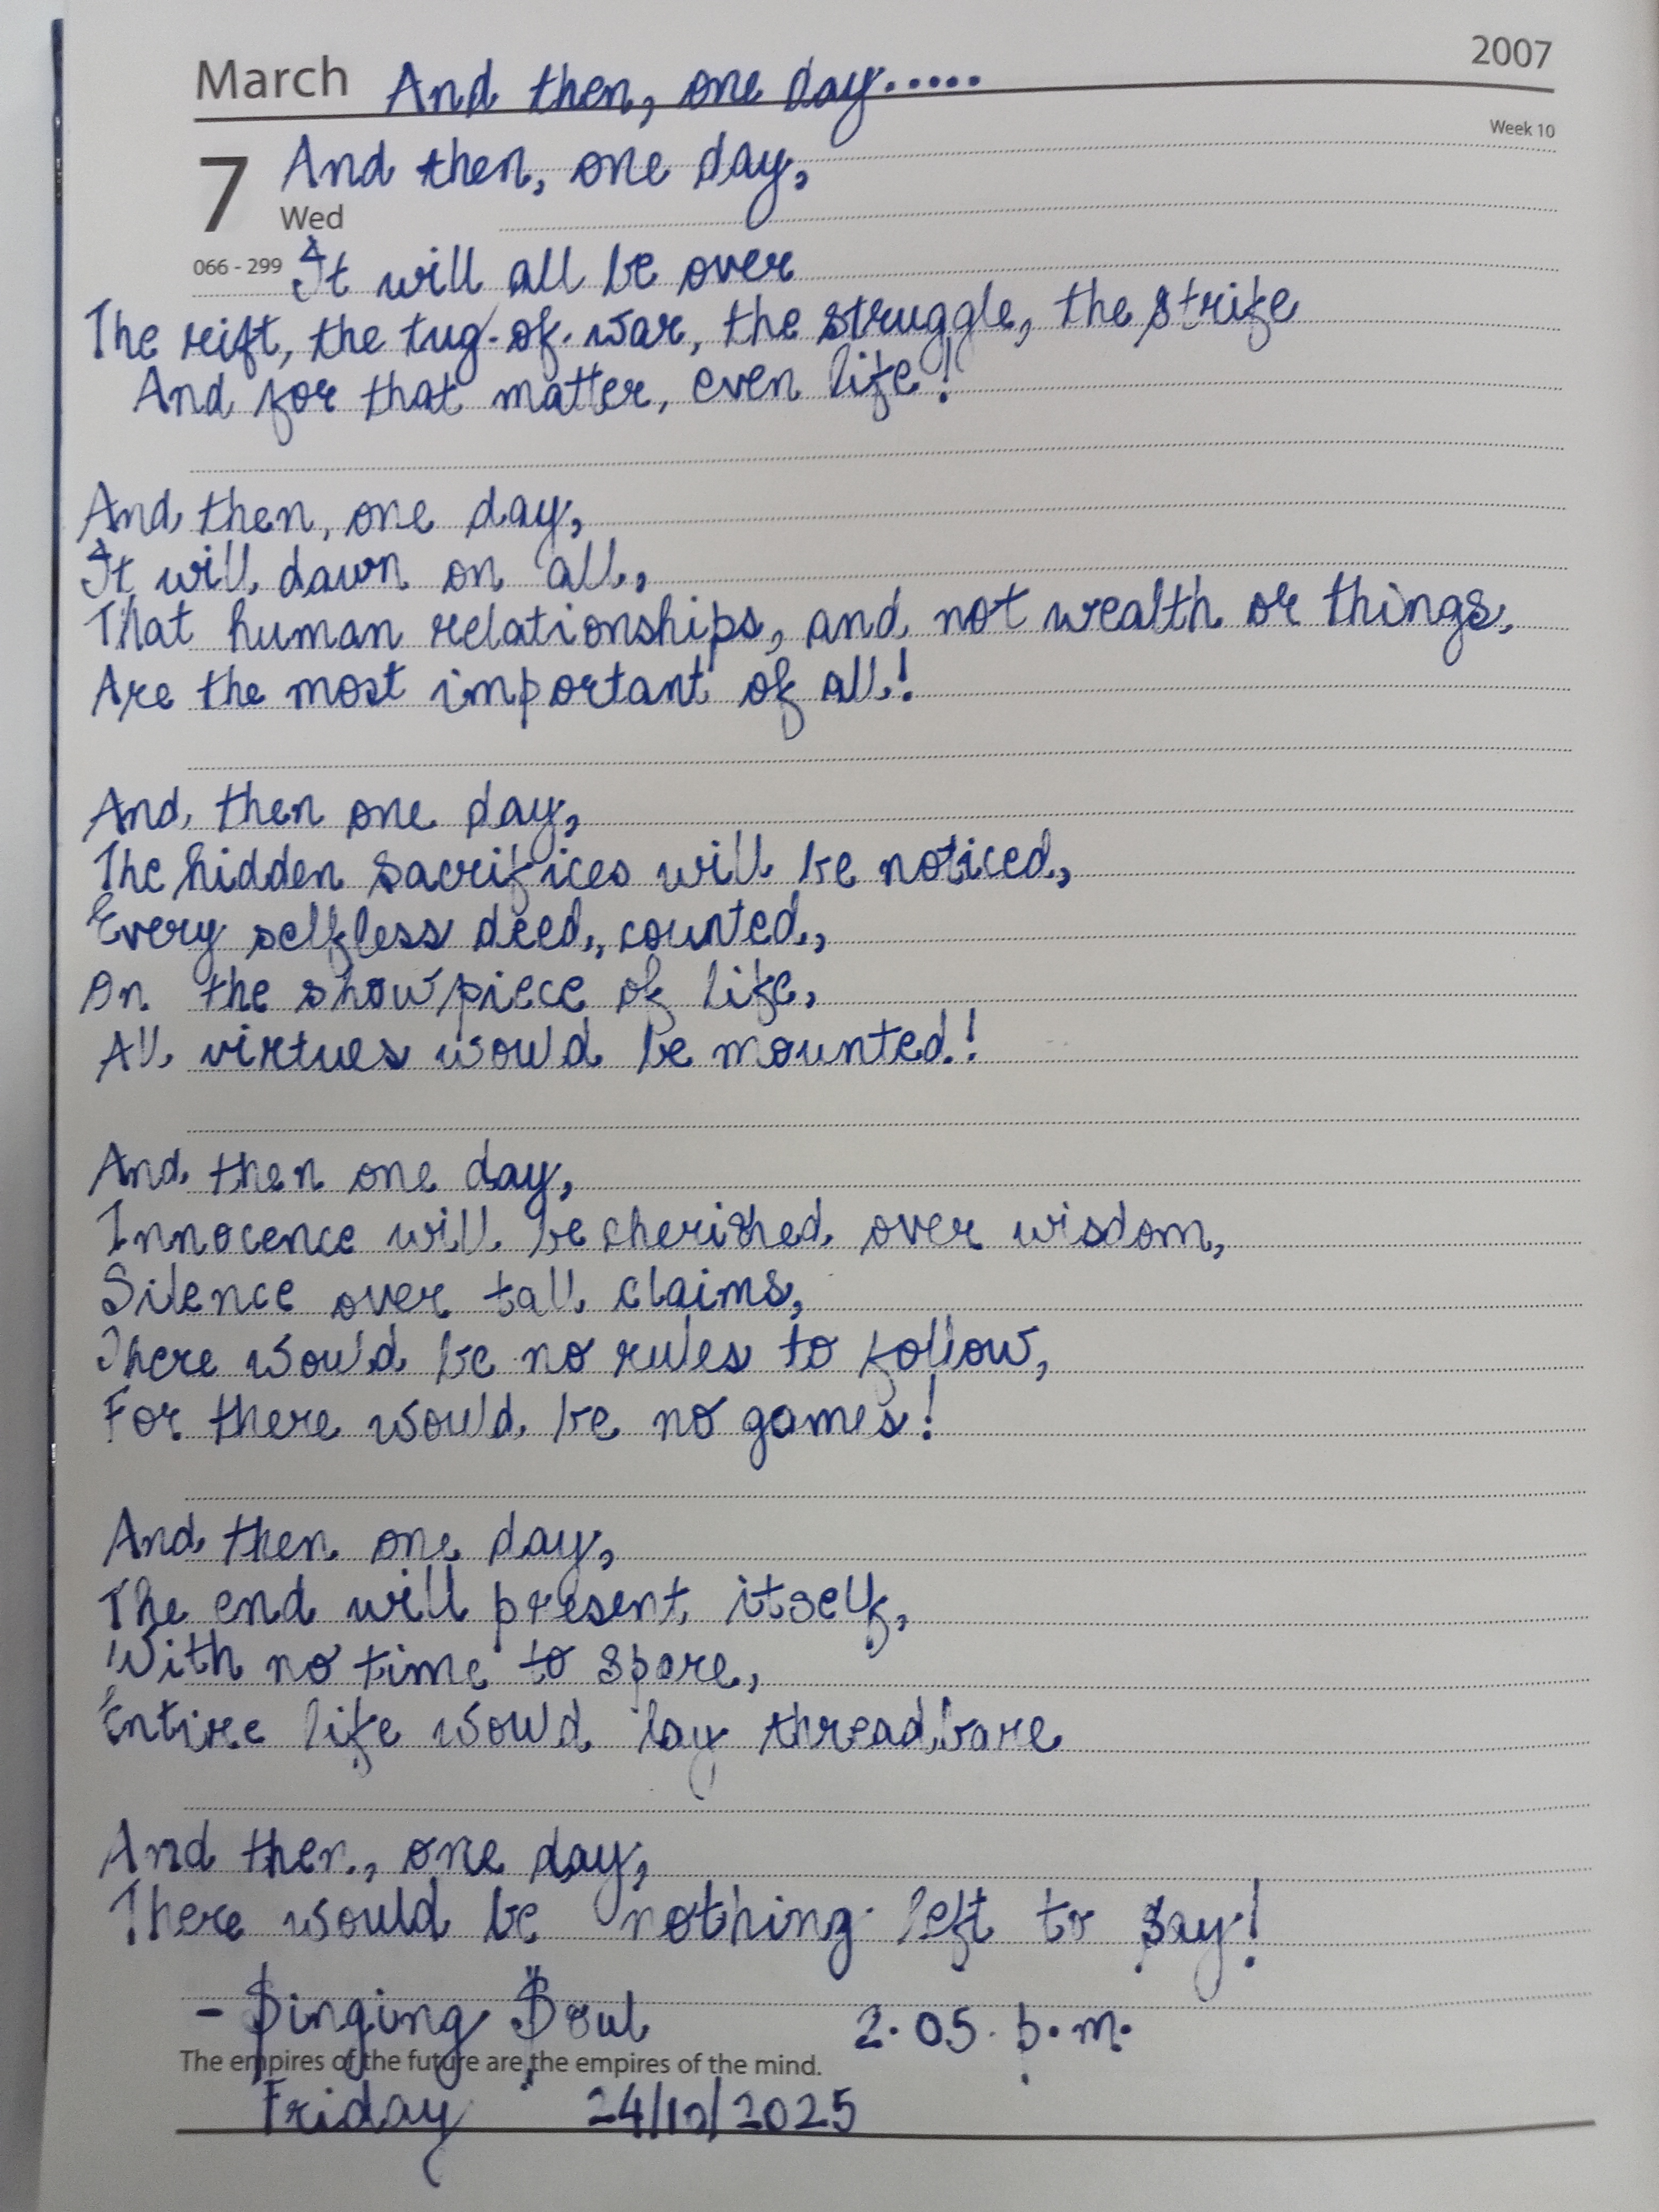 March And then, one day.....
2007
Week 10
7 And then, one day,
Wed
066 - 299 It will all be over
The rift, the tug-of-war, the struggle, the strife
And for that matter, even life!
And then, one day,
It will dawn on all,
That human relationships, and not wealth or things,
Are the most important of all!
And then one day,
The hidden sacrifices will be noticed,
Every selfless deed, counted,
On the showpiece of life,
All virtues would be mounted!
And then one day,
Innocence will be cherished over wisdom,
Silence over tall claims,
There would be no rules to follow,
For there would be no games!
And then one day,
The end will present itself,
With no time to spare,
Entire life would lay threadbare
And then, one day,
There would be nothing left to say!
- Singing Soul 2.05 p.m.
The empires of the future are the empires of the mind.
Friday 24/10/2025